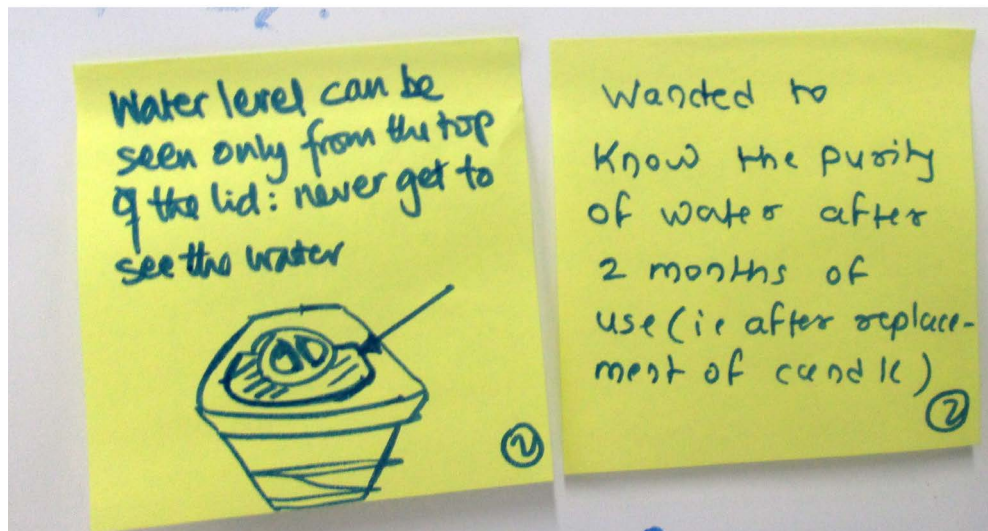 Water level can be
seen only from the top
of the lid: never get to
see the water
2
Wanted to
Know the purity
of water after
2 months of
use (ie after replace-
ment of candle)
2